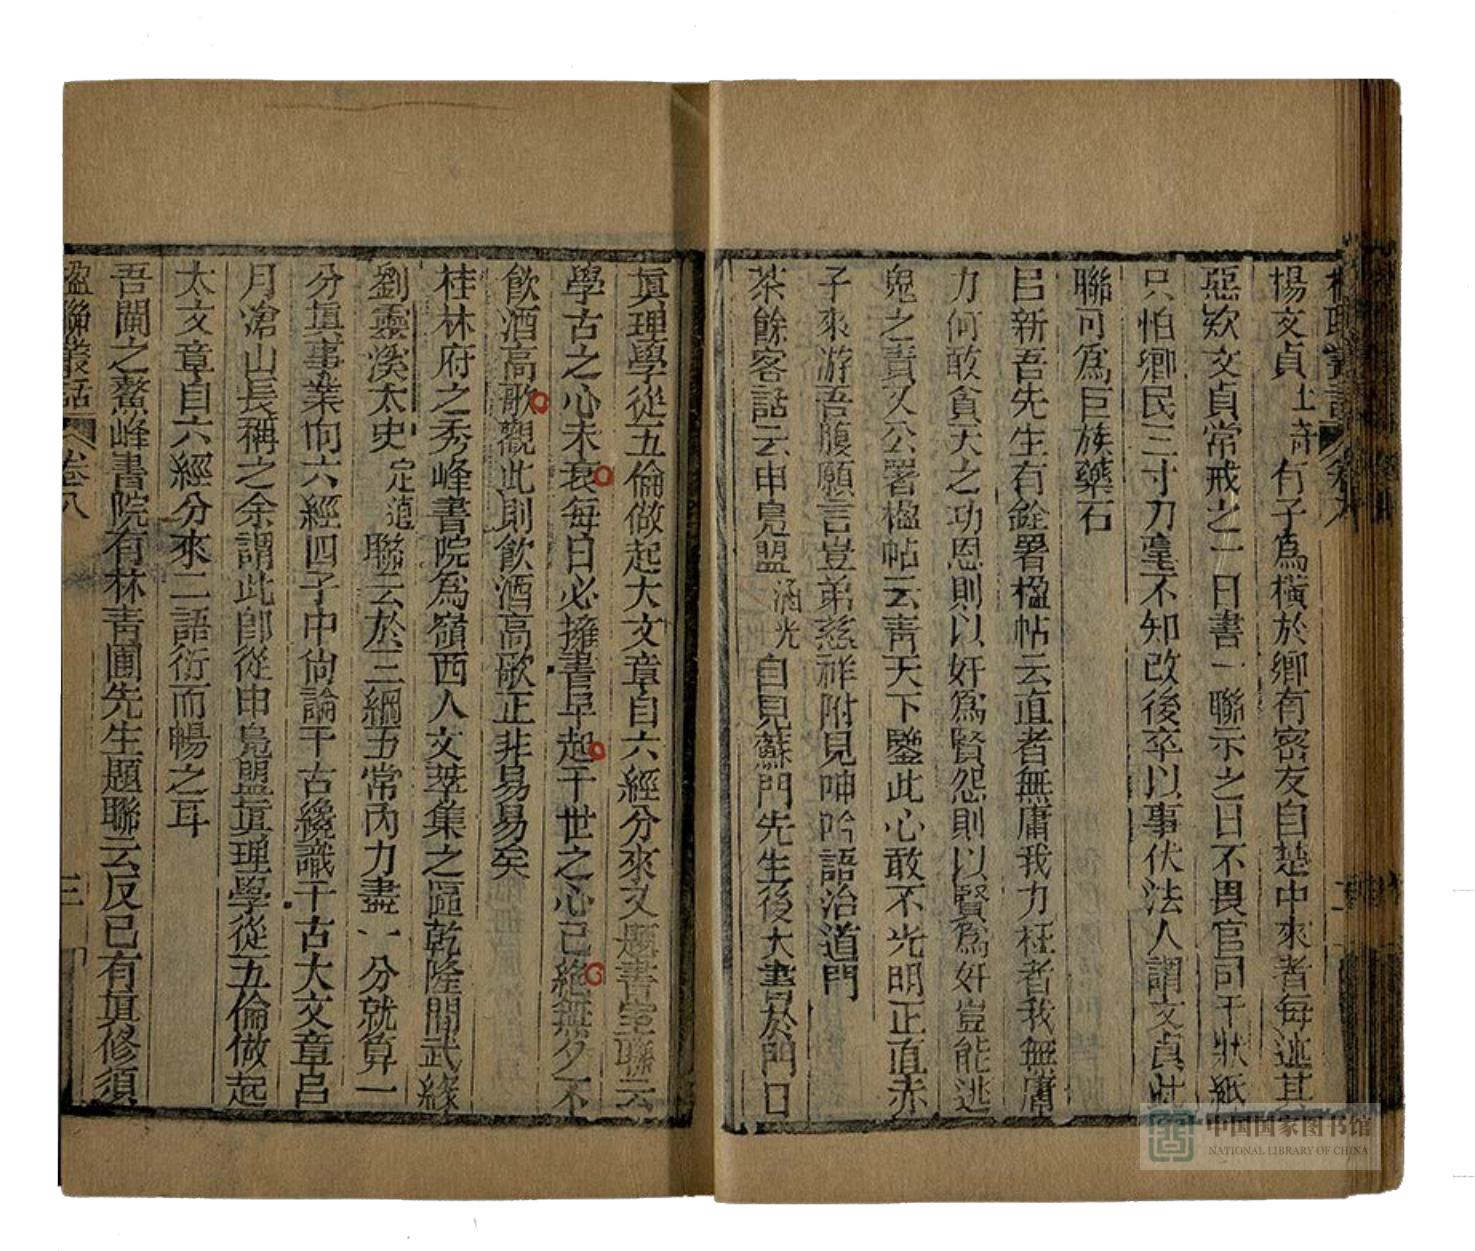 楹聯叢話 卷八
楊文貞士奇有子為橫於鄉有密友自楚中來者每述其
惡欵文貞常戒之一日書一聯示之曰不畏官司千狀紙
只怕鄉民三寸刀毫不知改後卒以事伏法人謂文貞此
聯可為巨族藥石
呂新吾先生有銓署楹帖云直者無庸我力枉者我無庸
力何敢貪天之功恩則以奸為賢怨則以賢為奸豈能逃
鬼之責又公署楹帖云青天下鑒此心敢不光明正直赤
子來游吾腹願言豈弟慈祥附見呻吟語治道門
茶餘客話云申鳧盟涵光自見蘇門先生後大書於門曰
真理學從五倫做起大文章自六經分來又題書室聯云
學古之心未衰每日必擁書早起干世之心已絕無夕不
飲酒高歌觀此則飲酒高歌正非易易矣
桂林府之秀峰書院為嶺西人文萃集之區乾隆間武緣
劉靈溪太史定逌聯云於三綱五常內力盡一分就算一
分真事業向六經四子中尚論千古纔識千古大文章呂
月滄山長稱之余謂此即從申鳧盟真理學從五倫做起
太文章自六經分來二語衍而暢之耳
吾閩之鰲峰書院有林青圃先生題聯云反己有真修須
楹聯叢話 卷八 三
中国国家图书馆
NATIONAL LIBRARY OF CHINA